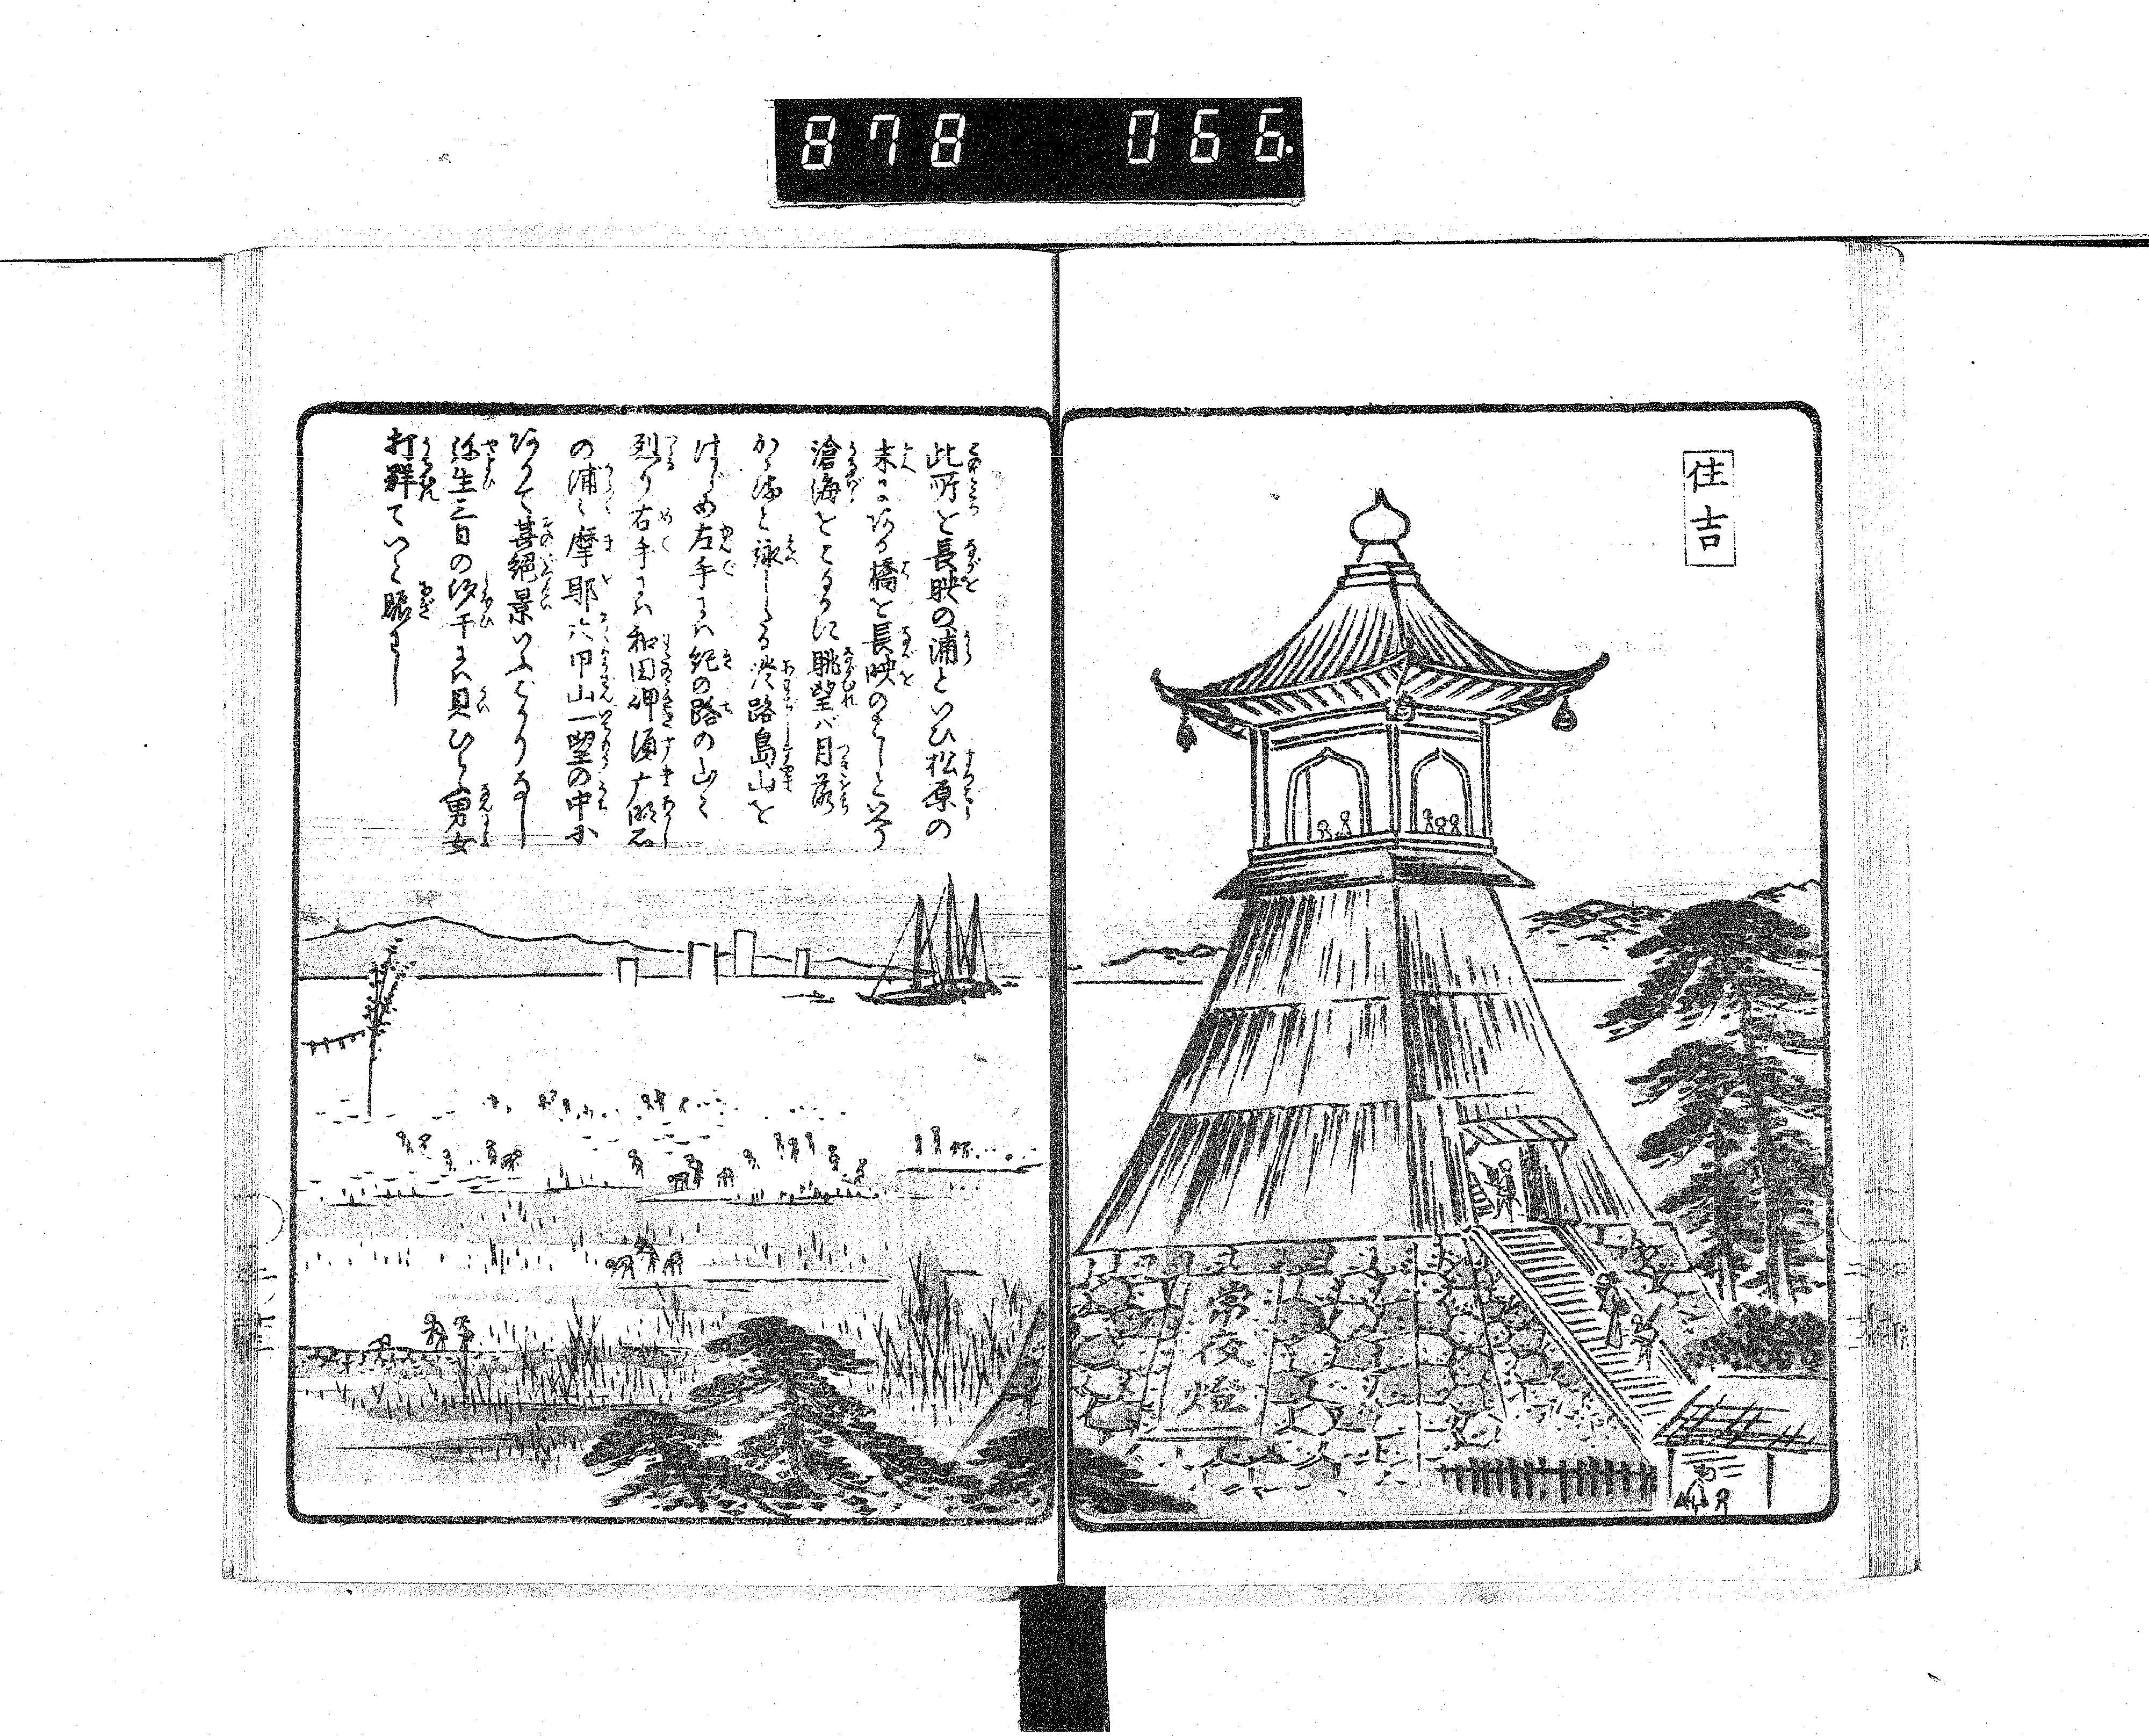 878 066.
住吉
常夜燈
此所を長映の浦といひ松原の
末にある橋を長映のはしといふ
滄海をこなたに眺望バ月落
かゝると詠じたる淡路島山を
はじめ左手にハ紀の路の山々
烈り右手にハ和田岬須广明石
の浦々摩耶六甲山一望の中に
ありて甚絶景いふばかりなし
弥生三日の汐干にハ貝ひらふ男女
打群ていと賑はし